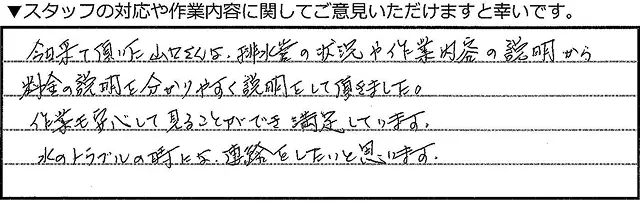 ▼スタッフの対応や作業内容に関してご意見いただけますと幸いです。
今日来て頂いた山口さんは、排水管の状況や作業内容の説明から
料金の説明を分かりやすく説明をして頂きました。
作業も安心して見ることができ満足しています。
水のトラブルの時には、連絡をしたいと思います。